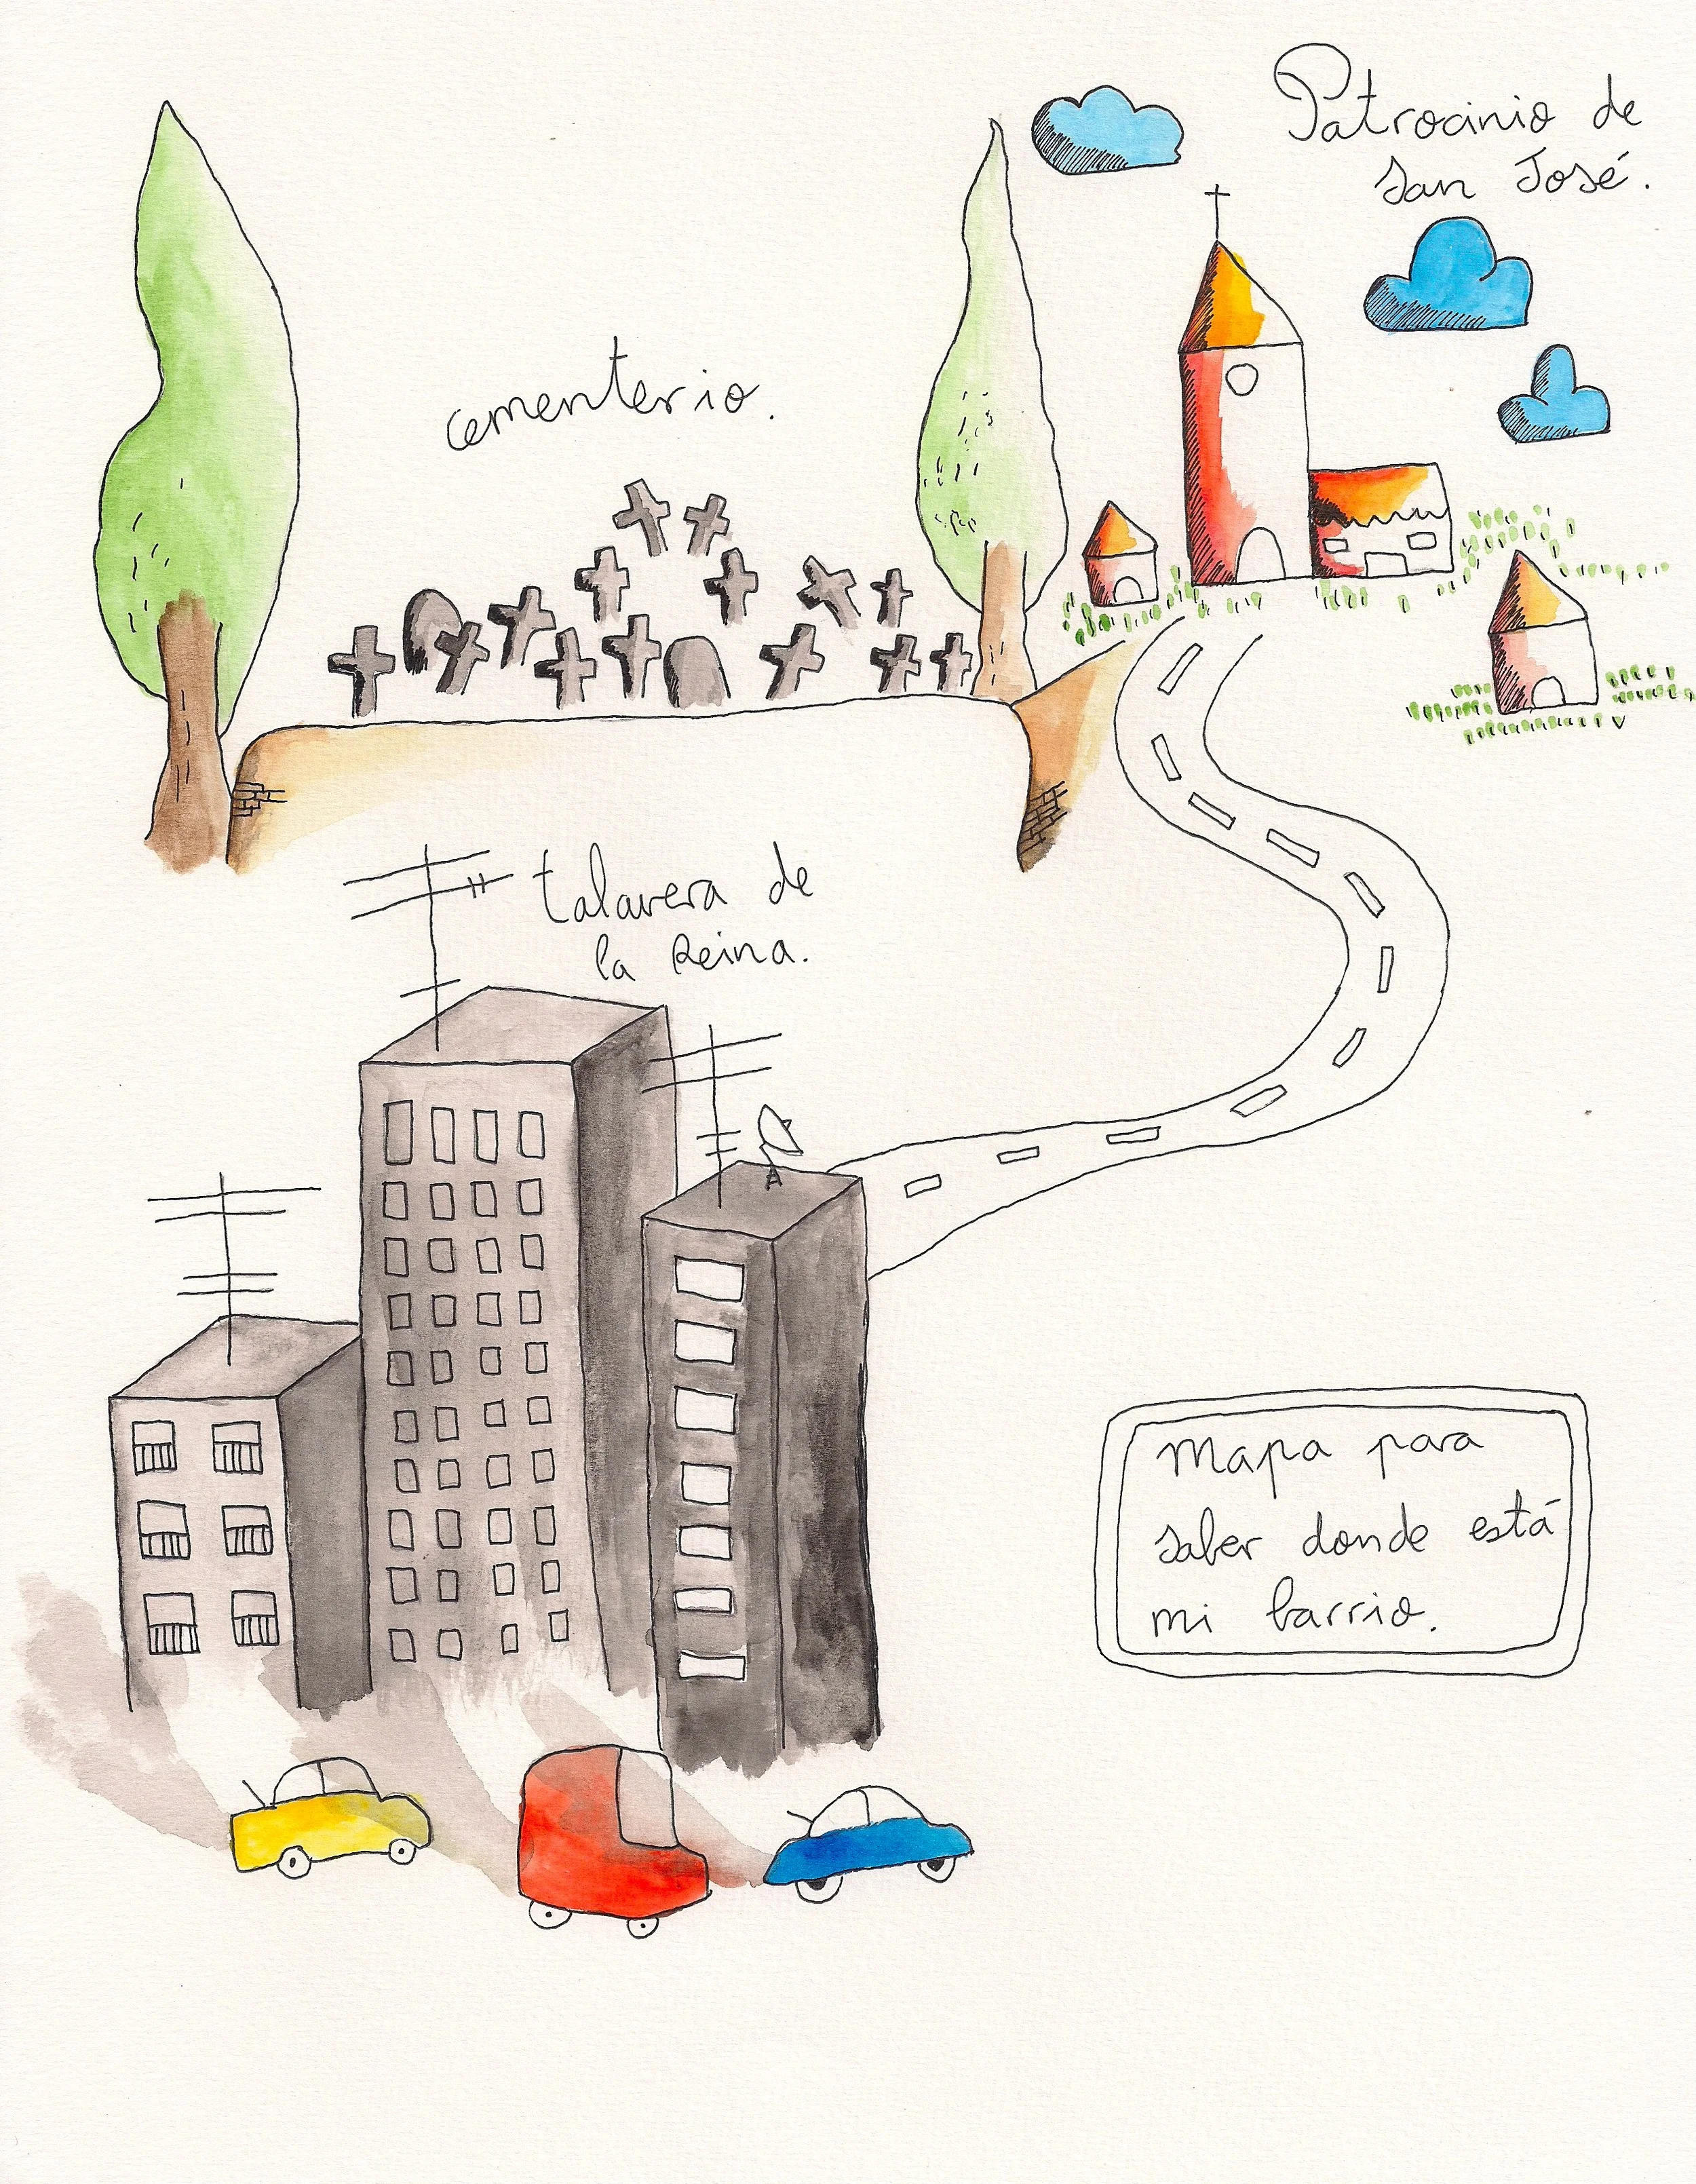 Patrocinio de
San José.
cementerio.
talavera de
la Reina.
Mapa para
saber donde está
mi barrio.